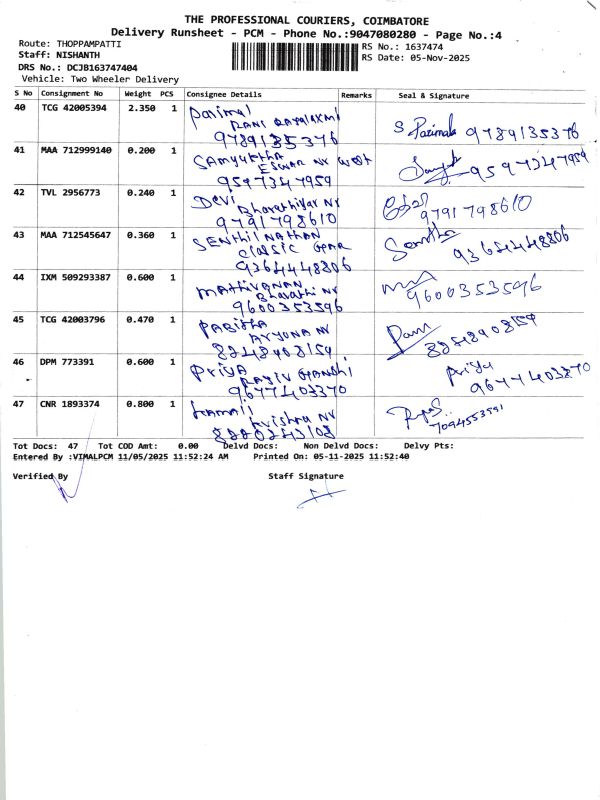 THE PROFESSIONAL COURIERS, COIMBATORE
Delivery Runsheet - PCM - Phone No.:9047080280 - Page No.:4
Route: THOPPAMPATTI
Staff: NISHANTH
DRS No.: DCJB163747404
Vehicle: Two Wheeler Delivery
RS No.: 1637474
RS Date: 05-Nov-2025
S No Consignment No Weight PCS Consignee Details Remarks Seal & Signature
40 TCG 42005394 2.350 1 Parimal
RANI RAJALAXMI
9789135376
S. Parimala 9789135376
41 MAA 712999140 0.200 1 SAMYUKTHA
ESWAR NR West
9597347959
9597347959
42 TVL 2956773 0.240 1 Devi
Bharathiyar NR
9791798610
9791798610
43 MAA 712545647 0.360 1 SENTHIL NATHAN
CLASSIC
9364448806
9364448806
44 IXM 509293387 0.600 1 MATHIVANAN
Bharathi NR
9600353596
9600353596
45 TCG 42003796 0.470 1 PABITHA
NR
8248908159
8248908159
46 DPM 773391 0.600 1 PRIYA
RAJIV GANDHI
9677403370
Priya
9677403370
47 CNR 1893374 0.800 1
Krishna NR
7094553591
Tot Docs: 47 Tot COD Amt: 0.00 Delvd Docs: Non Delvd Docs: Delvy Pts:
Entered By :VIMALPCM 11/05/2025 11:52:24 AM Printed On: 05-11-2025 11:52:40
Verified By Staff Signature